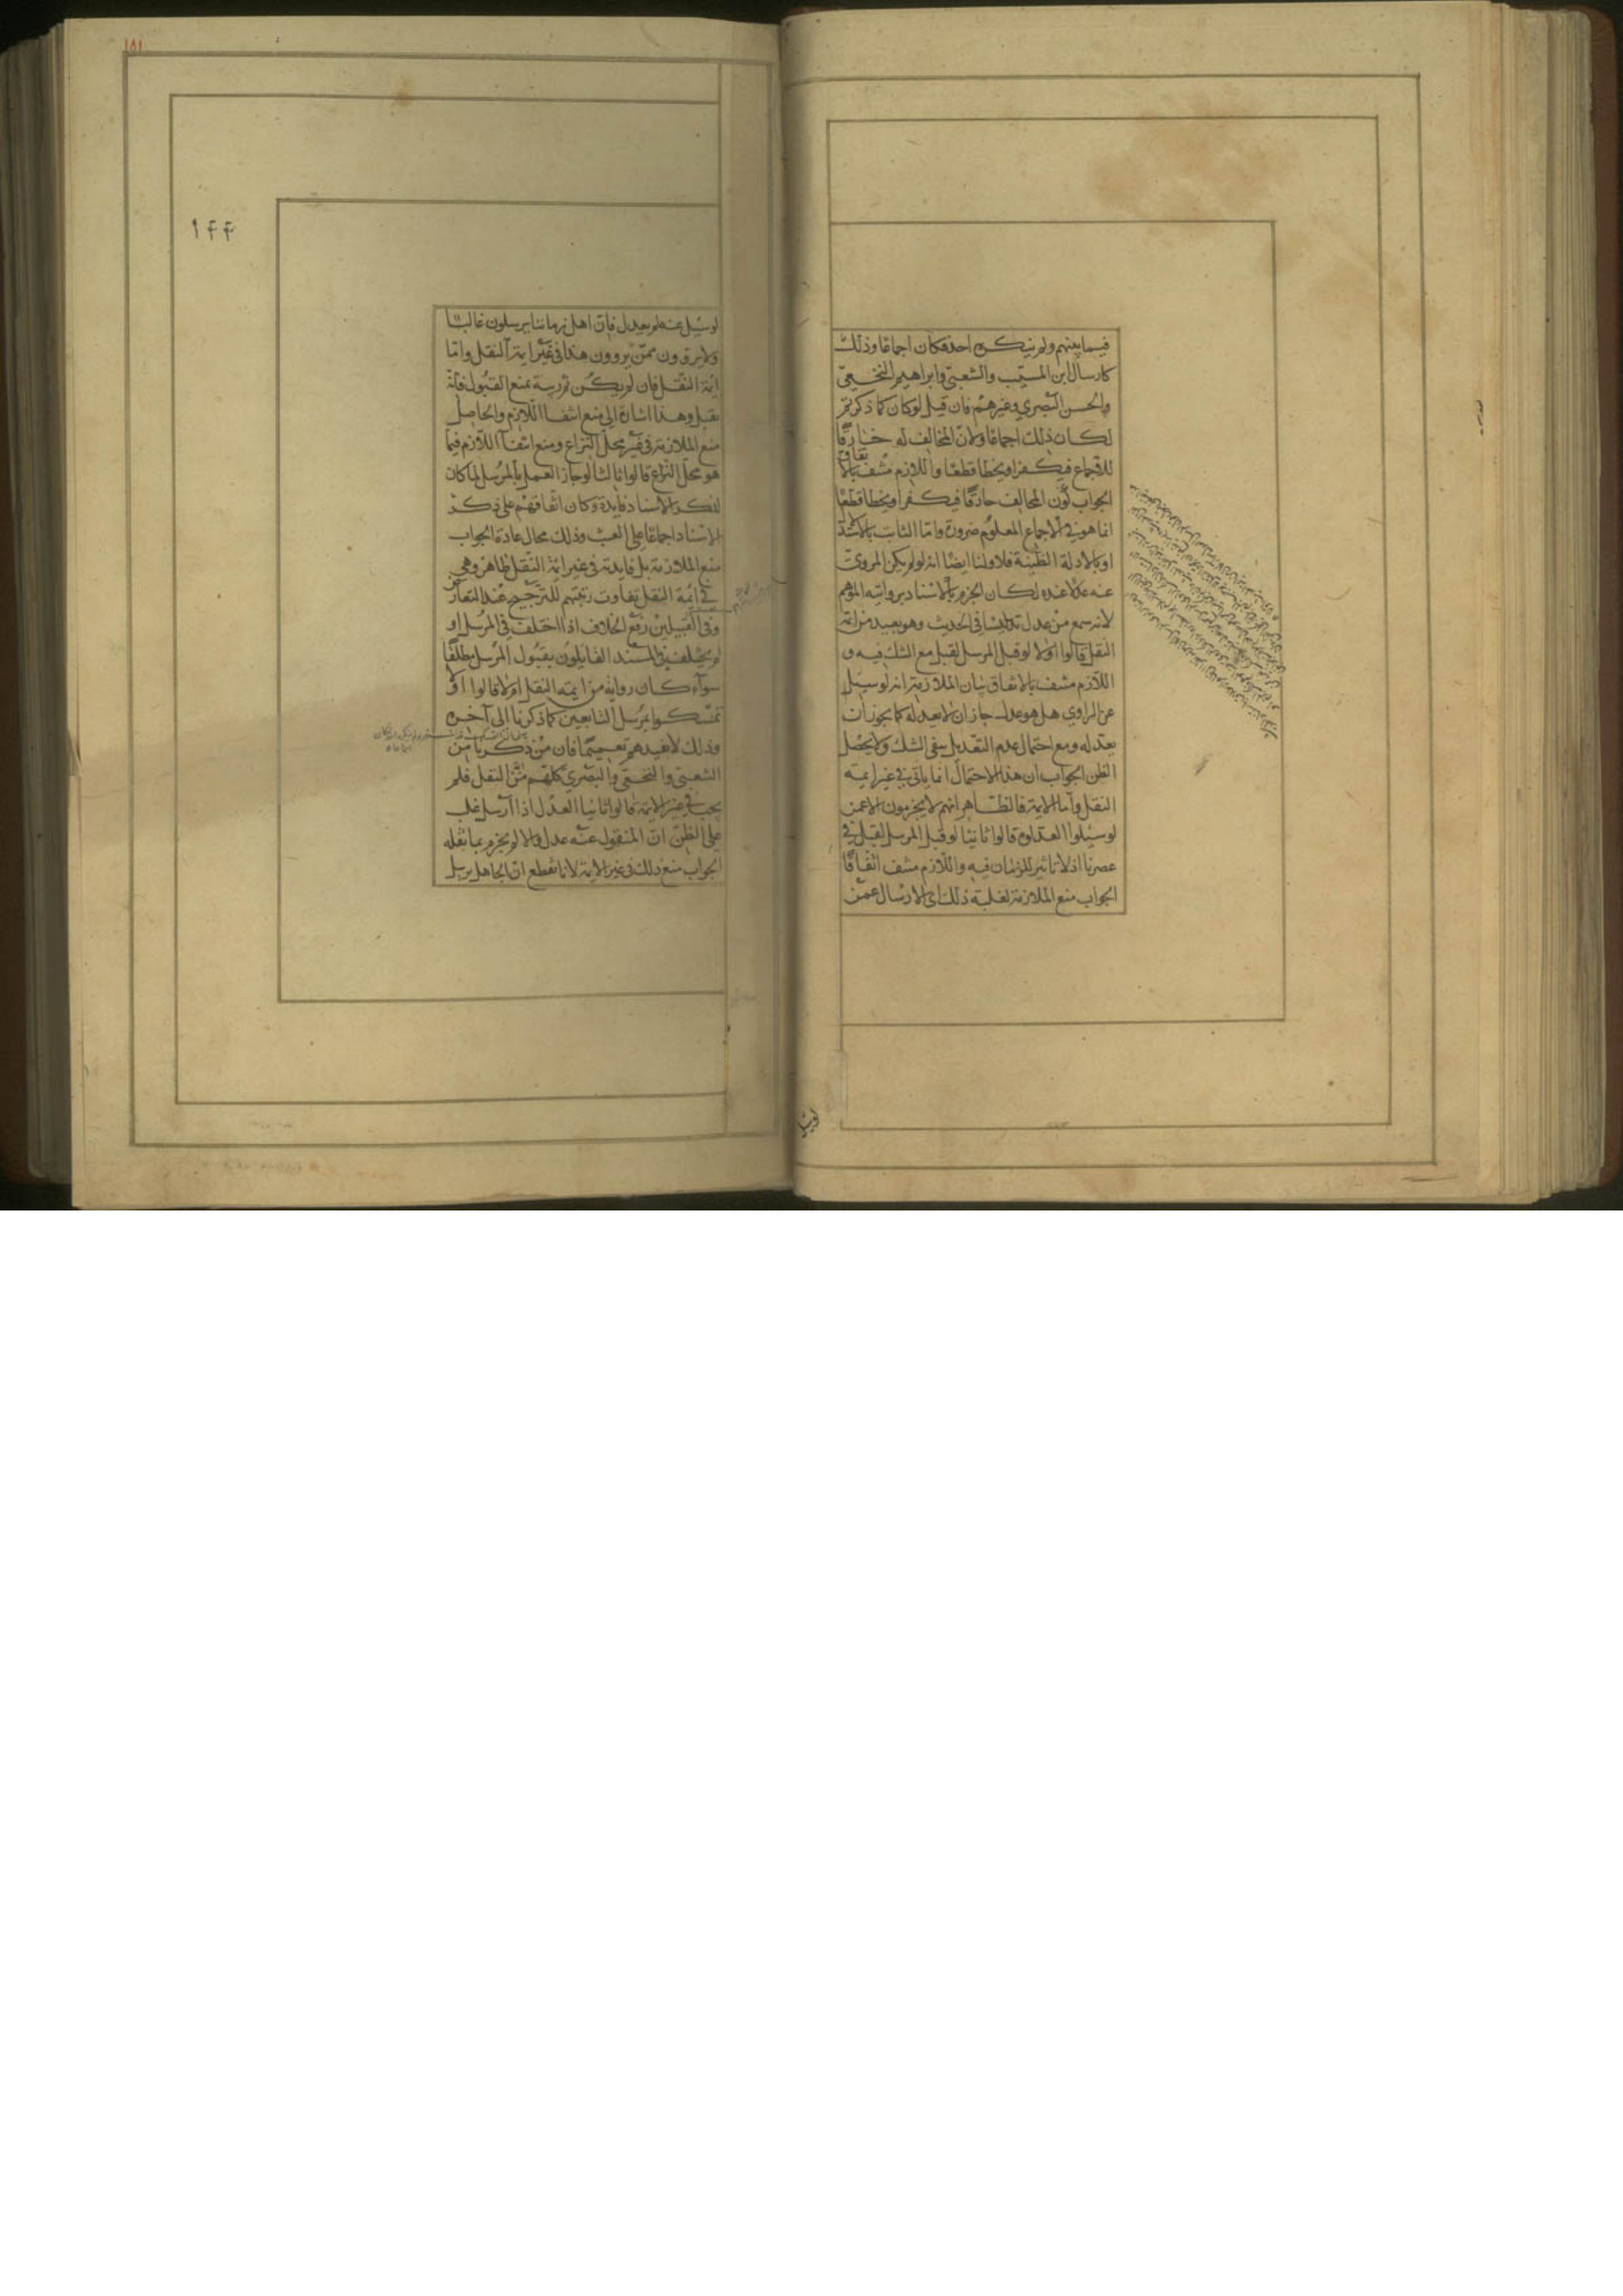 فيما بينهم ولم ينكره احد فكان اجماعا وذلك
كارسال ابن المسيّب والشعبيّ وابراهيم النخعيّ
والحسن البصري وغيرهم فان قيل لو كان كما ذكرتم
لكان ذلك اجماعا ولانّ المخالف له خارقًا
للاجماع فيكفر او يخطا قطعا واللازم منتف بالاتفاق
الجواب كون المخالف خارقًا فيكفر او يخطا قطعًا
انما هو في الاجماع المعلوم ضرورة واما الثابت بالا
او بالادلة الظنية فلا ولنا ايضًا انه لو لم يكن المرويّ
عنه عدلا عنده لكان الجزم بالاسناد بروايته الموهم
لانه سمع من عدل تدليسًا في الحديث وهو بعيد من ائمة
النقل قالوا اولا لو قبل المرسل لقبل مع الشك فيه و
اللازم منتف بالاتفاق بيان الملازمة انه لو سئل
عن الراوي هل هو عدل جاز ان لا يعدله كما يجوز ان
يعدله ومع احتمال عدم التعديل يبقى الشك ولا يحصل
الظن الجواب ان هذا الاحتمال انما ياتي في غير ايمة
النقل واما الايمة فالظاهر انهم لا يجزمون الا عمن
لو سئلوا لعدلوه قالوا ثانيا لو قبل المرسل لقبل في
عصرنا اذ لا تاثير للزمان فيه واللازم منتف اتفاقًا
الجواب منع الملازمة لغلبة ذلك اى الارسال عمّن
لو سئل
١٨١
١٤٤
لو سئل عنه لم يعدل فان اهل زماننا يرسلون غالبًا
ولا يدرون ممّن يروون هذا في غير ايمة النقل وامّا
ائمة النقل فان لم يكن ثم ريبة تمنع القبول فانه
يقبل وهذا اشارة الى منع انتفا اللازم والحاصل
منع الملازمة في غير محلّ النزاع ومنع انتفآ اللازم فيما
هو محلّ النزاع قالوا ثالثا لو جاز العمل بالمرسل لما كان
لذكر الاسناد فايدة وكان اتفاقهم على ذكر
الاسناد اجماعًا على العبث وذلك محال عادة الجواب
منع الملازمة بل فايدته في غير ائمة النقل ظاهر وهي
في ائمة النقل تفاوت رتبتهم للترجيح عند التعارض
وفي القبيلين رفع الخلاف اذا اختلف في المرسل او
لم يختلف في المسند القايلون بقبول المرسل مطلقًا
سوآء كان روايه من ايمة النقل او لا قالوا اولا
تمسكوا بمرسل التابعين كما ذكرنا الى آخره
وذلك لا يفيدهم تعميمًا فان من ذكرنا من
الشعبي والنخعي والبصري كلهم من النقل فلم
يجب في غير الايمة قالوا ثانيا العدل اذا ارسل غلب
على الظن انّ المنقول عنه عدل والا لم يجزم بما نقله
الجواب منع ذلك في غير الايمة لانا نقطع انّ الجاهل يرسل